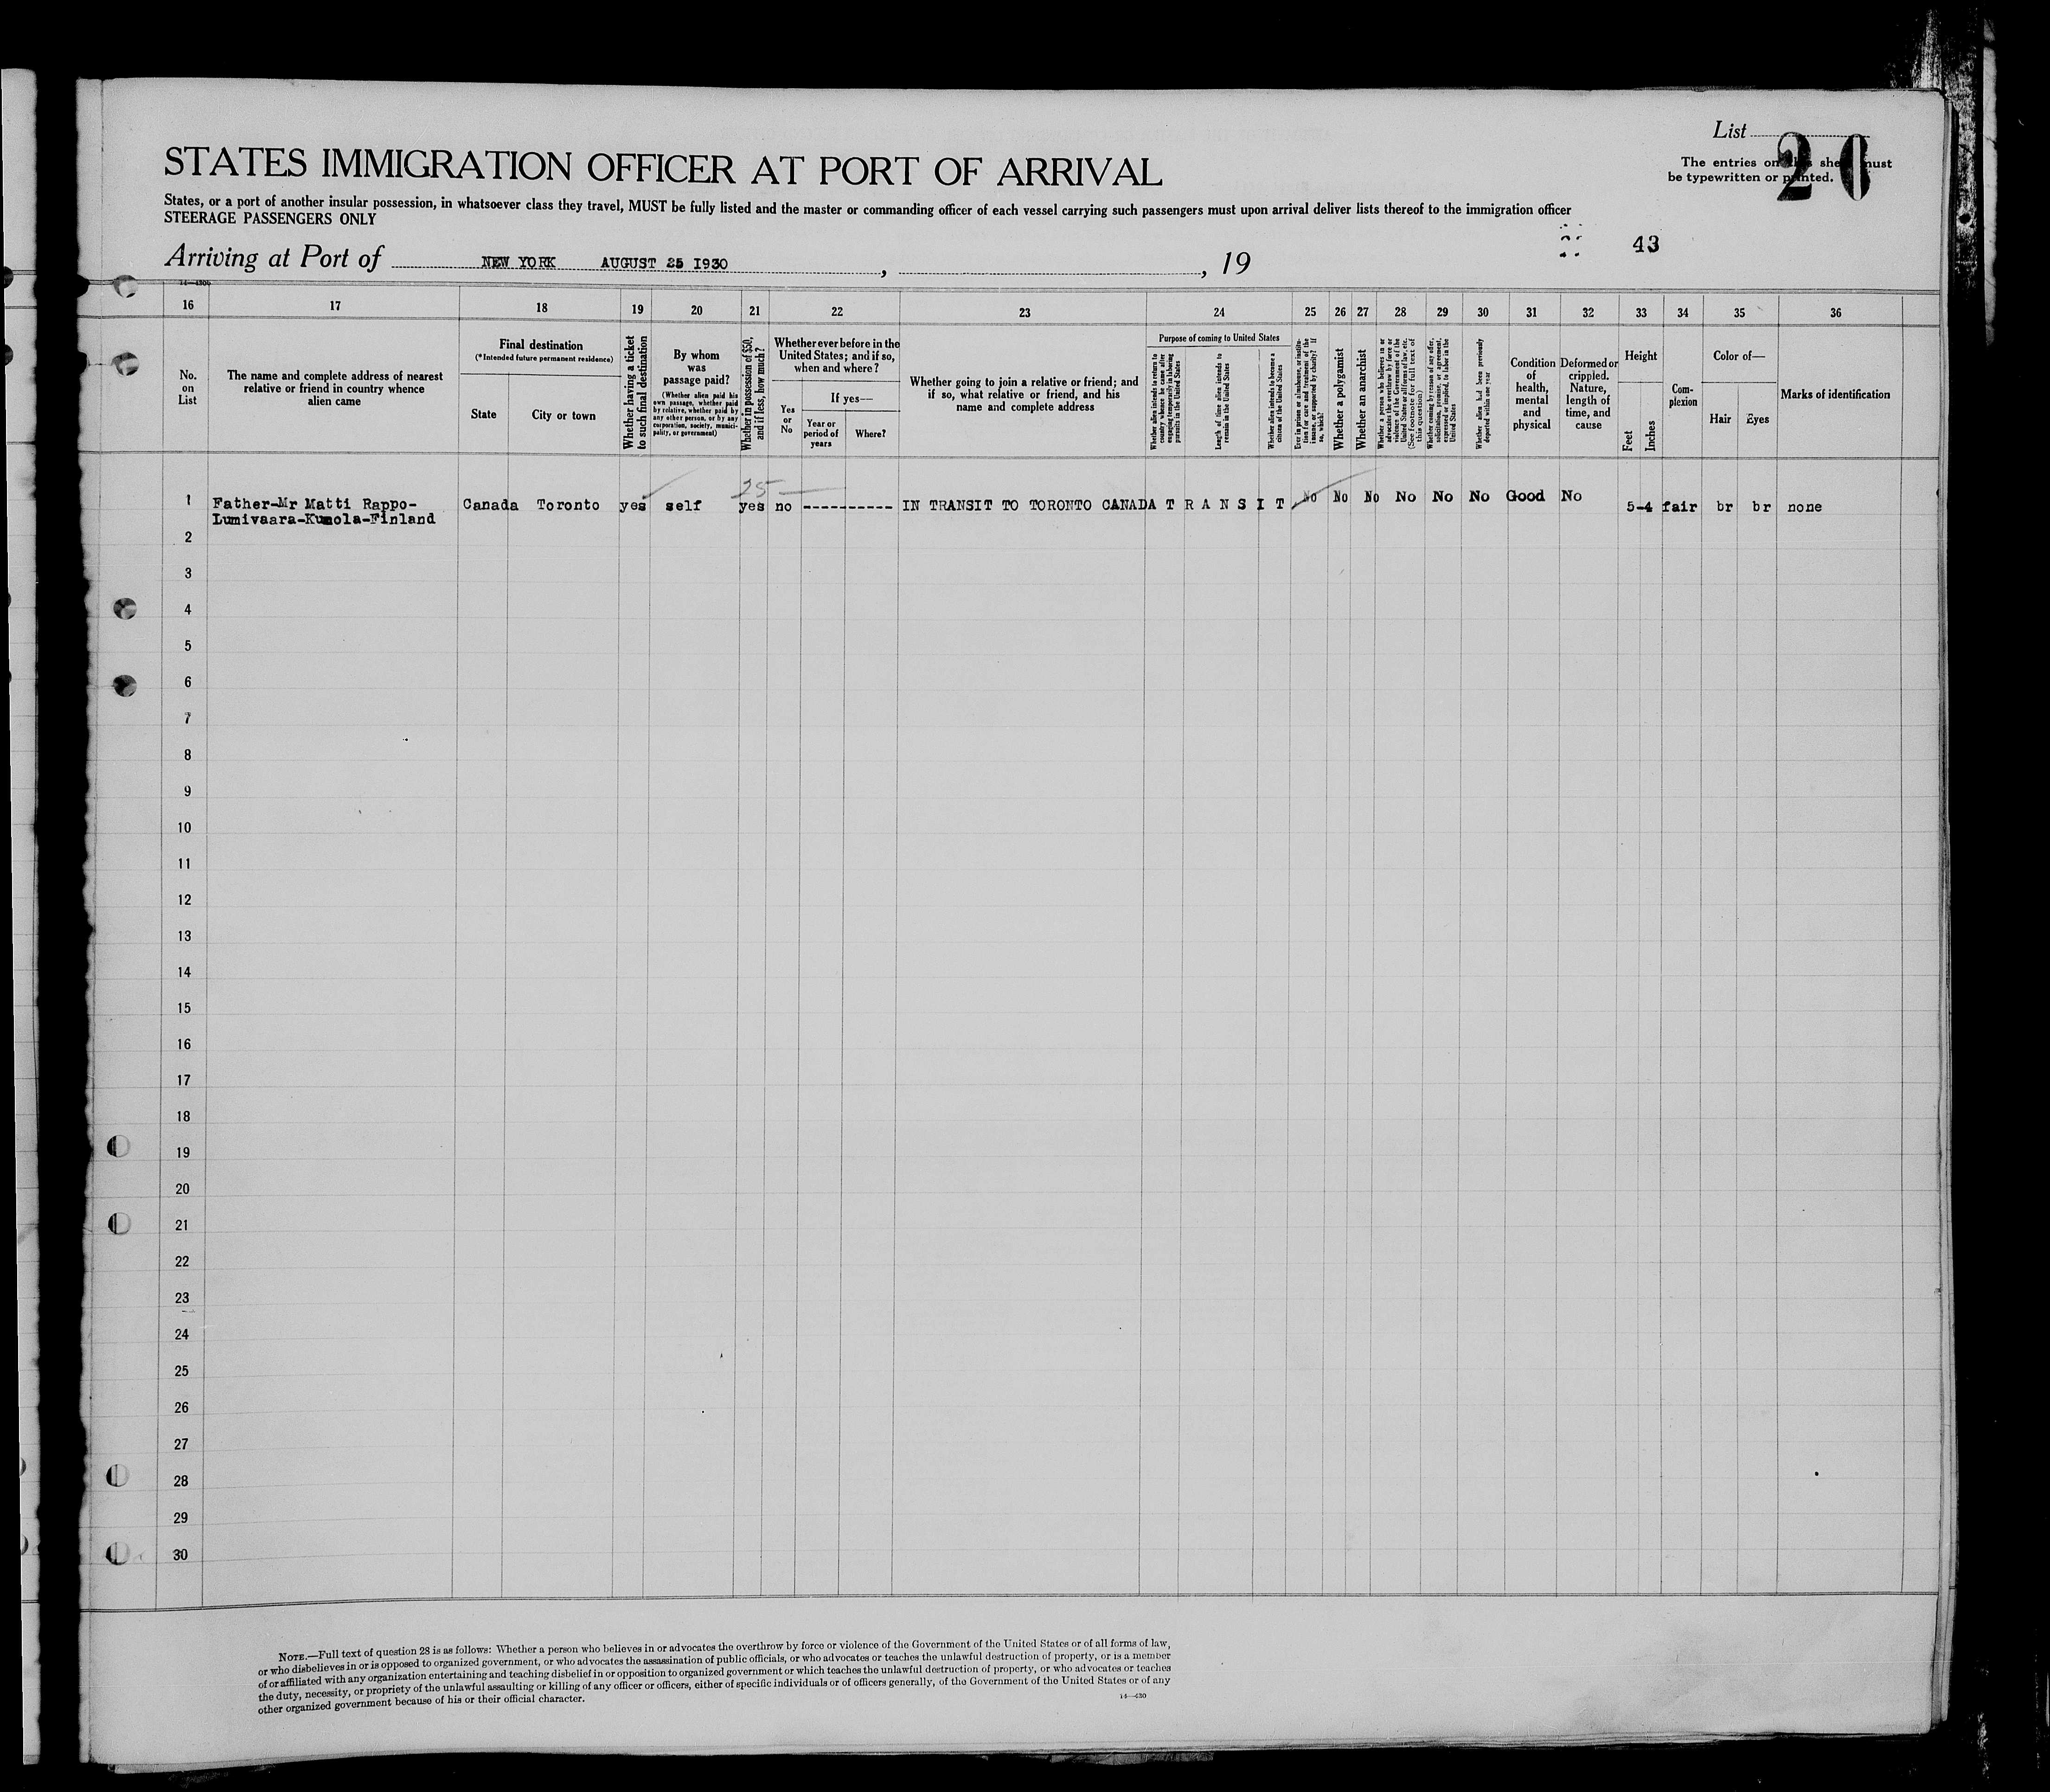 List
20
The entries on this sheet must
be typewritten or printed.
STATES IMMIGRATION OFFICER AT PORT OF ARRIVAL
States, or a port of another insular possession, in whatsoever class they travel, MUST be fully listed and the master or commanding officer of each vessel carrying such passengers must upon arrival deliver lists thereof to the immigration officer
STEERAGE PASSENGERS ONLY
43
Arriving at Port of NEW YORK AUGUST 25 1930, , 19
16 17 18 19 20 21 22 23 24 25 26 27 28 29 30 31 32 33 34 35 36
No.
on
List
The name and complete address of nearest
relative or friend in country whence
alien came
Final destination
(*Intended future permanent residence)
State
City or town
Whether having a ticket
to such final destination
By whom
was
passage paid?
(Whether alien paid his
own passage, whether paid
by relative, whether paid by
any other person, or by any
corporation, society, munici-
pality, or government)
Whether in possession of $50,
and if less, how much?
Whether ever before in the
United States; and if so,
when and where?
Yes
or
No
If yes—
Year or
period of
years
Where?
Whether going to join a relative or friend; and
if so, what relative or friend, and his
name and complete address
Purpose of coming to United States
Whether alien intends to return to
country whence he came after
engaging temporarily in laboring
pursuits in the United States
Length of time alien intends to
remain in the United States
Whether alien intends to become a
citizen of the United States
Ever in prison or almshouse, or institu-
tion for care and treatment of the
insane, or supported by charity? If
so, which?
Whether a polygamist
Whether an anarchist
Whether a person who believes in or
advocates the overthrow by force or
violence of the Government of the
United States or all forms of law, etc.
(See footnote for full text of
this question)
Whether coming by reason of any offer,
solicitation, promise, or agreement,
expressed or implied, to labor in the
United States
Whether alien had been previously
deported within one year
Condition
of
health,
mental
and
physical
Deformed or
crippled.
Nature,
length of
time, and
cause
Height
Feet
Inches
Com-
plexion
Color of—
Hair
Eyes
Marks of identification
25
1 Father-Mr Matti Rappo- Canada Toronto yes self yes no ---------- IN TRANSIT TO TORONTO CANADA T R A N S I T No No No No No No Good No 5-4 fair br br none
Lumivaara-Kumola-Finland
2
3
4
5
6
7
8
9
10
11
12
13
14
15
16
17
18
19
20
21
22
23
24
25
26
27
28
29
30
NOTE.—Full text of question 28 is as follows: Whether a person who believes in or advocates the overthrow by force or violence of the Government of the United States or of all forms of law,
or who disbelieves in or is opposed to organized government, or who advocates the assassination of public officials, or who advocates or teaches the unlawful destruction of property, or is a member
of or affiliated with any organization entertaining and teaching disbelief in or opposition to organized government or which teaches the unlawful destruction of property, or who advocates or teaches
the duty, necessity, or propriety of the unlawful assaulting or killing of any officer or officers, either of specific individuals or of officers generally, of the Government of the United States or of any
other organized government because of his or their official character.
14—430